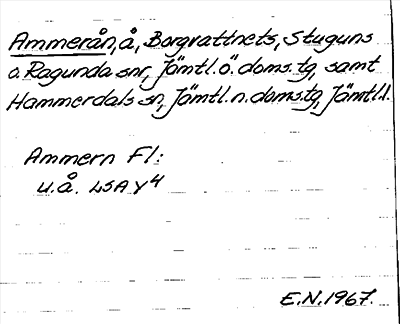 Ammerån, å, Borgvattnets, Stuguns
o. Ragunda snr, Jämtl. ö. doms.tg, samt
Hammerdals sn, Jämtl. n. doms.tg, Jämtl.l.
Ammern Fl:
u.å. LSA Y4
E.N. 1967.